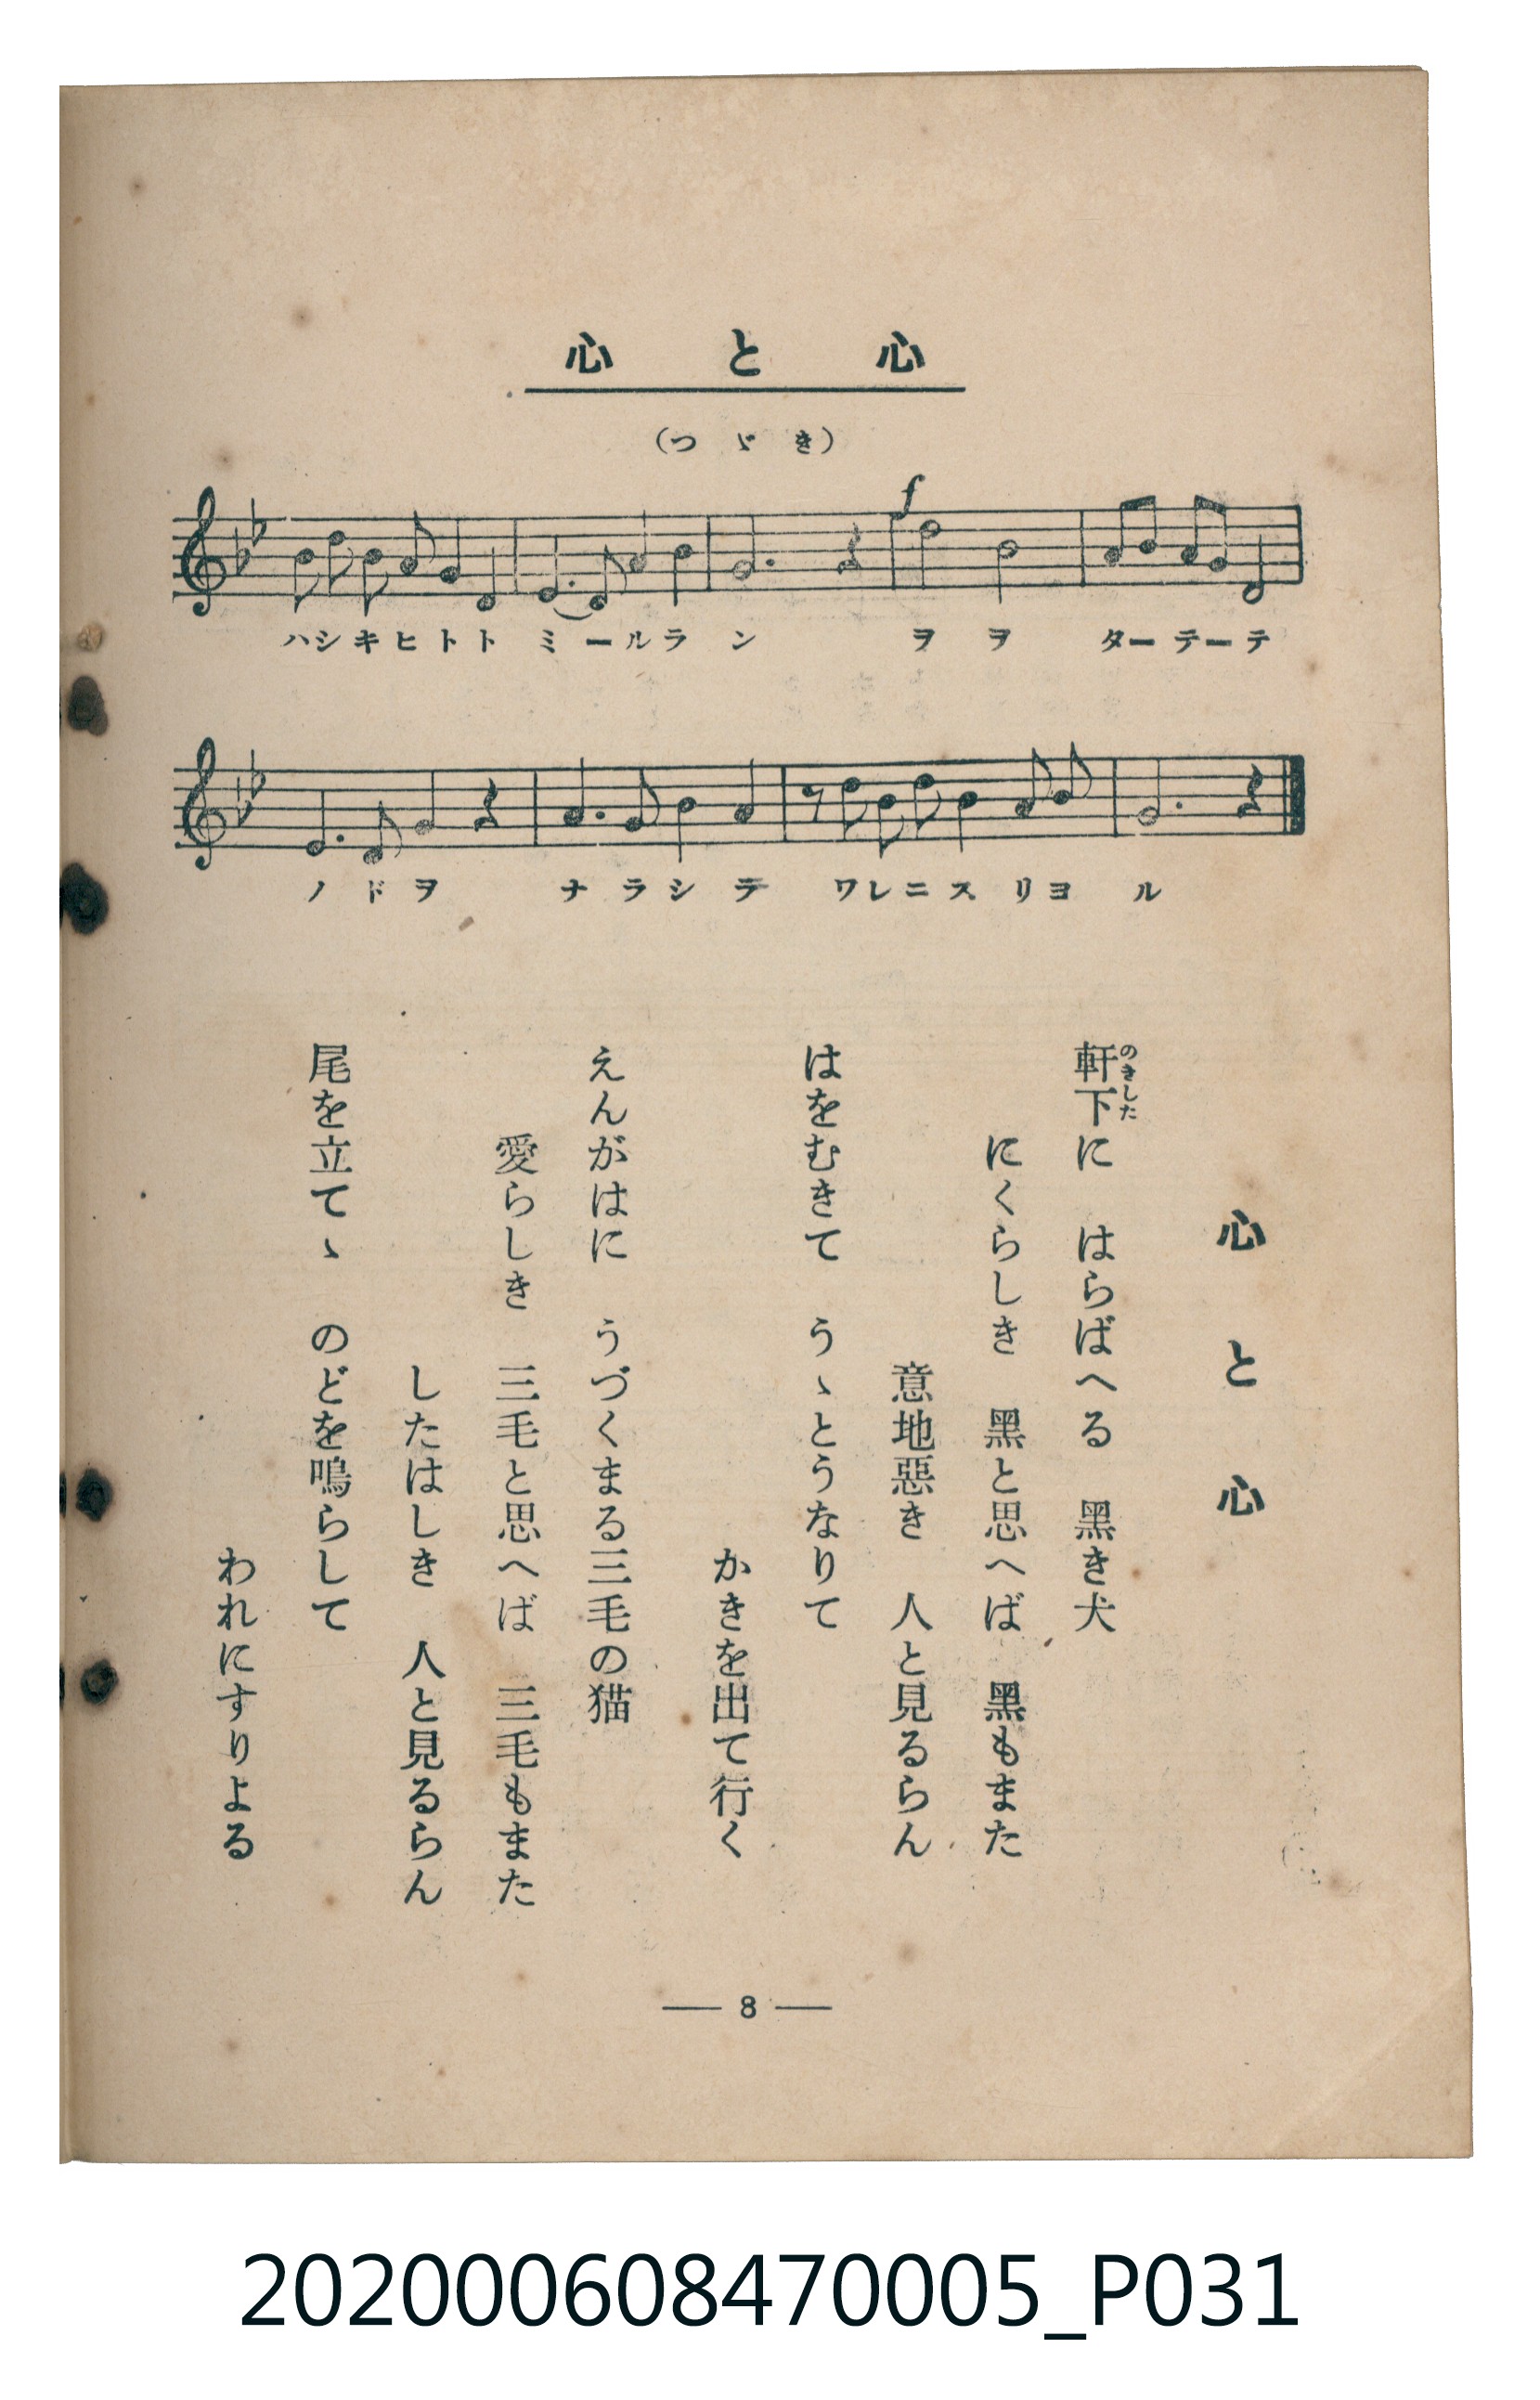 心と心
(つゞき)
f
ハシキヒトトミールランヲヲターテーテ
ノドヲナラシテワレニスリヨル
心と心
軒下に　はらばへる　黑き犬
のきした
にくらしき　黑と思へば　黑もまた
意地惡き　人と見るらん
はをむきて　うゝとうなりて
かきを出て行く
えんがはに　うづくまる三毛の猫
愛らしき　三毛と思へば　三毛もまた
したはしき　人と見るらん
尾を立てゝ　のどを鳴らして
われにすりよる
— 8 —
202000608470005_P031